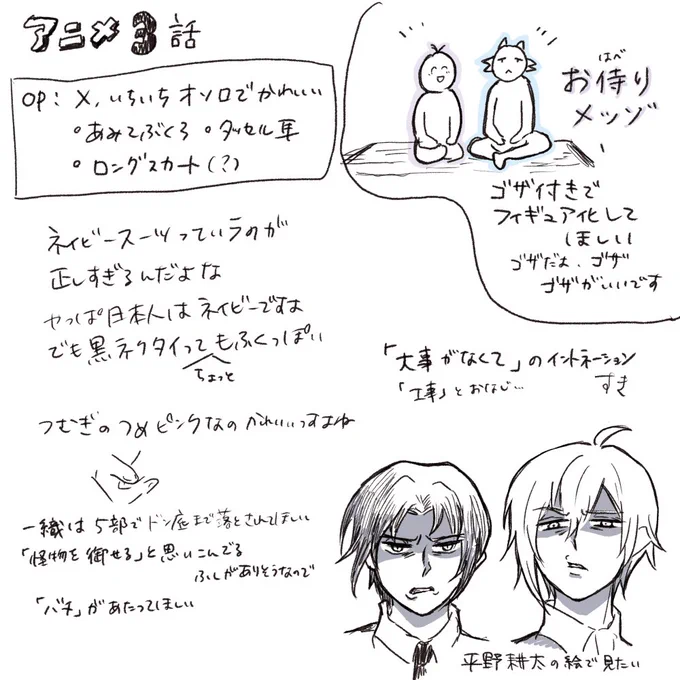 アニメ3話
OP: メ、いちいちオソロでかわいい
・あみてぶくろ ・タッセル耳
・ロングスカート(?)
はべ
お侍り
メッゾ
ゴザ付きで
フィギュア化して
ほしい
ゴザだよ、ゴザ
ゴザがいいです
ネイビースーツっていうのが
正しすぎるんだよな
やっぱ日本人はネイビーですよ
でも黒ネクタイってもふくっぽい
ちょっと
「大事がなくて」のイントネーション
「工事」とおなじ… すき
つむぎのつめピンクなのかわいいっすよね
一織は5部でドン底まで落とされてほしい
「怪物を御せる」と思いこんでる
ふしがありそうなので
「バチ」があたってほしい
平野耕太の絵で見たい